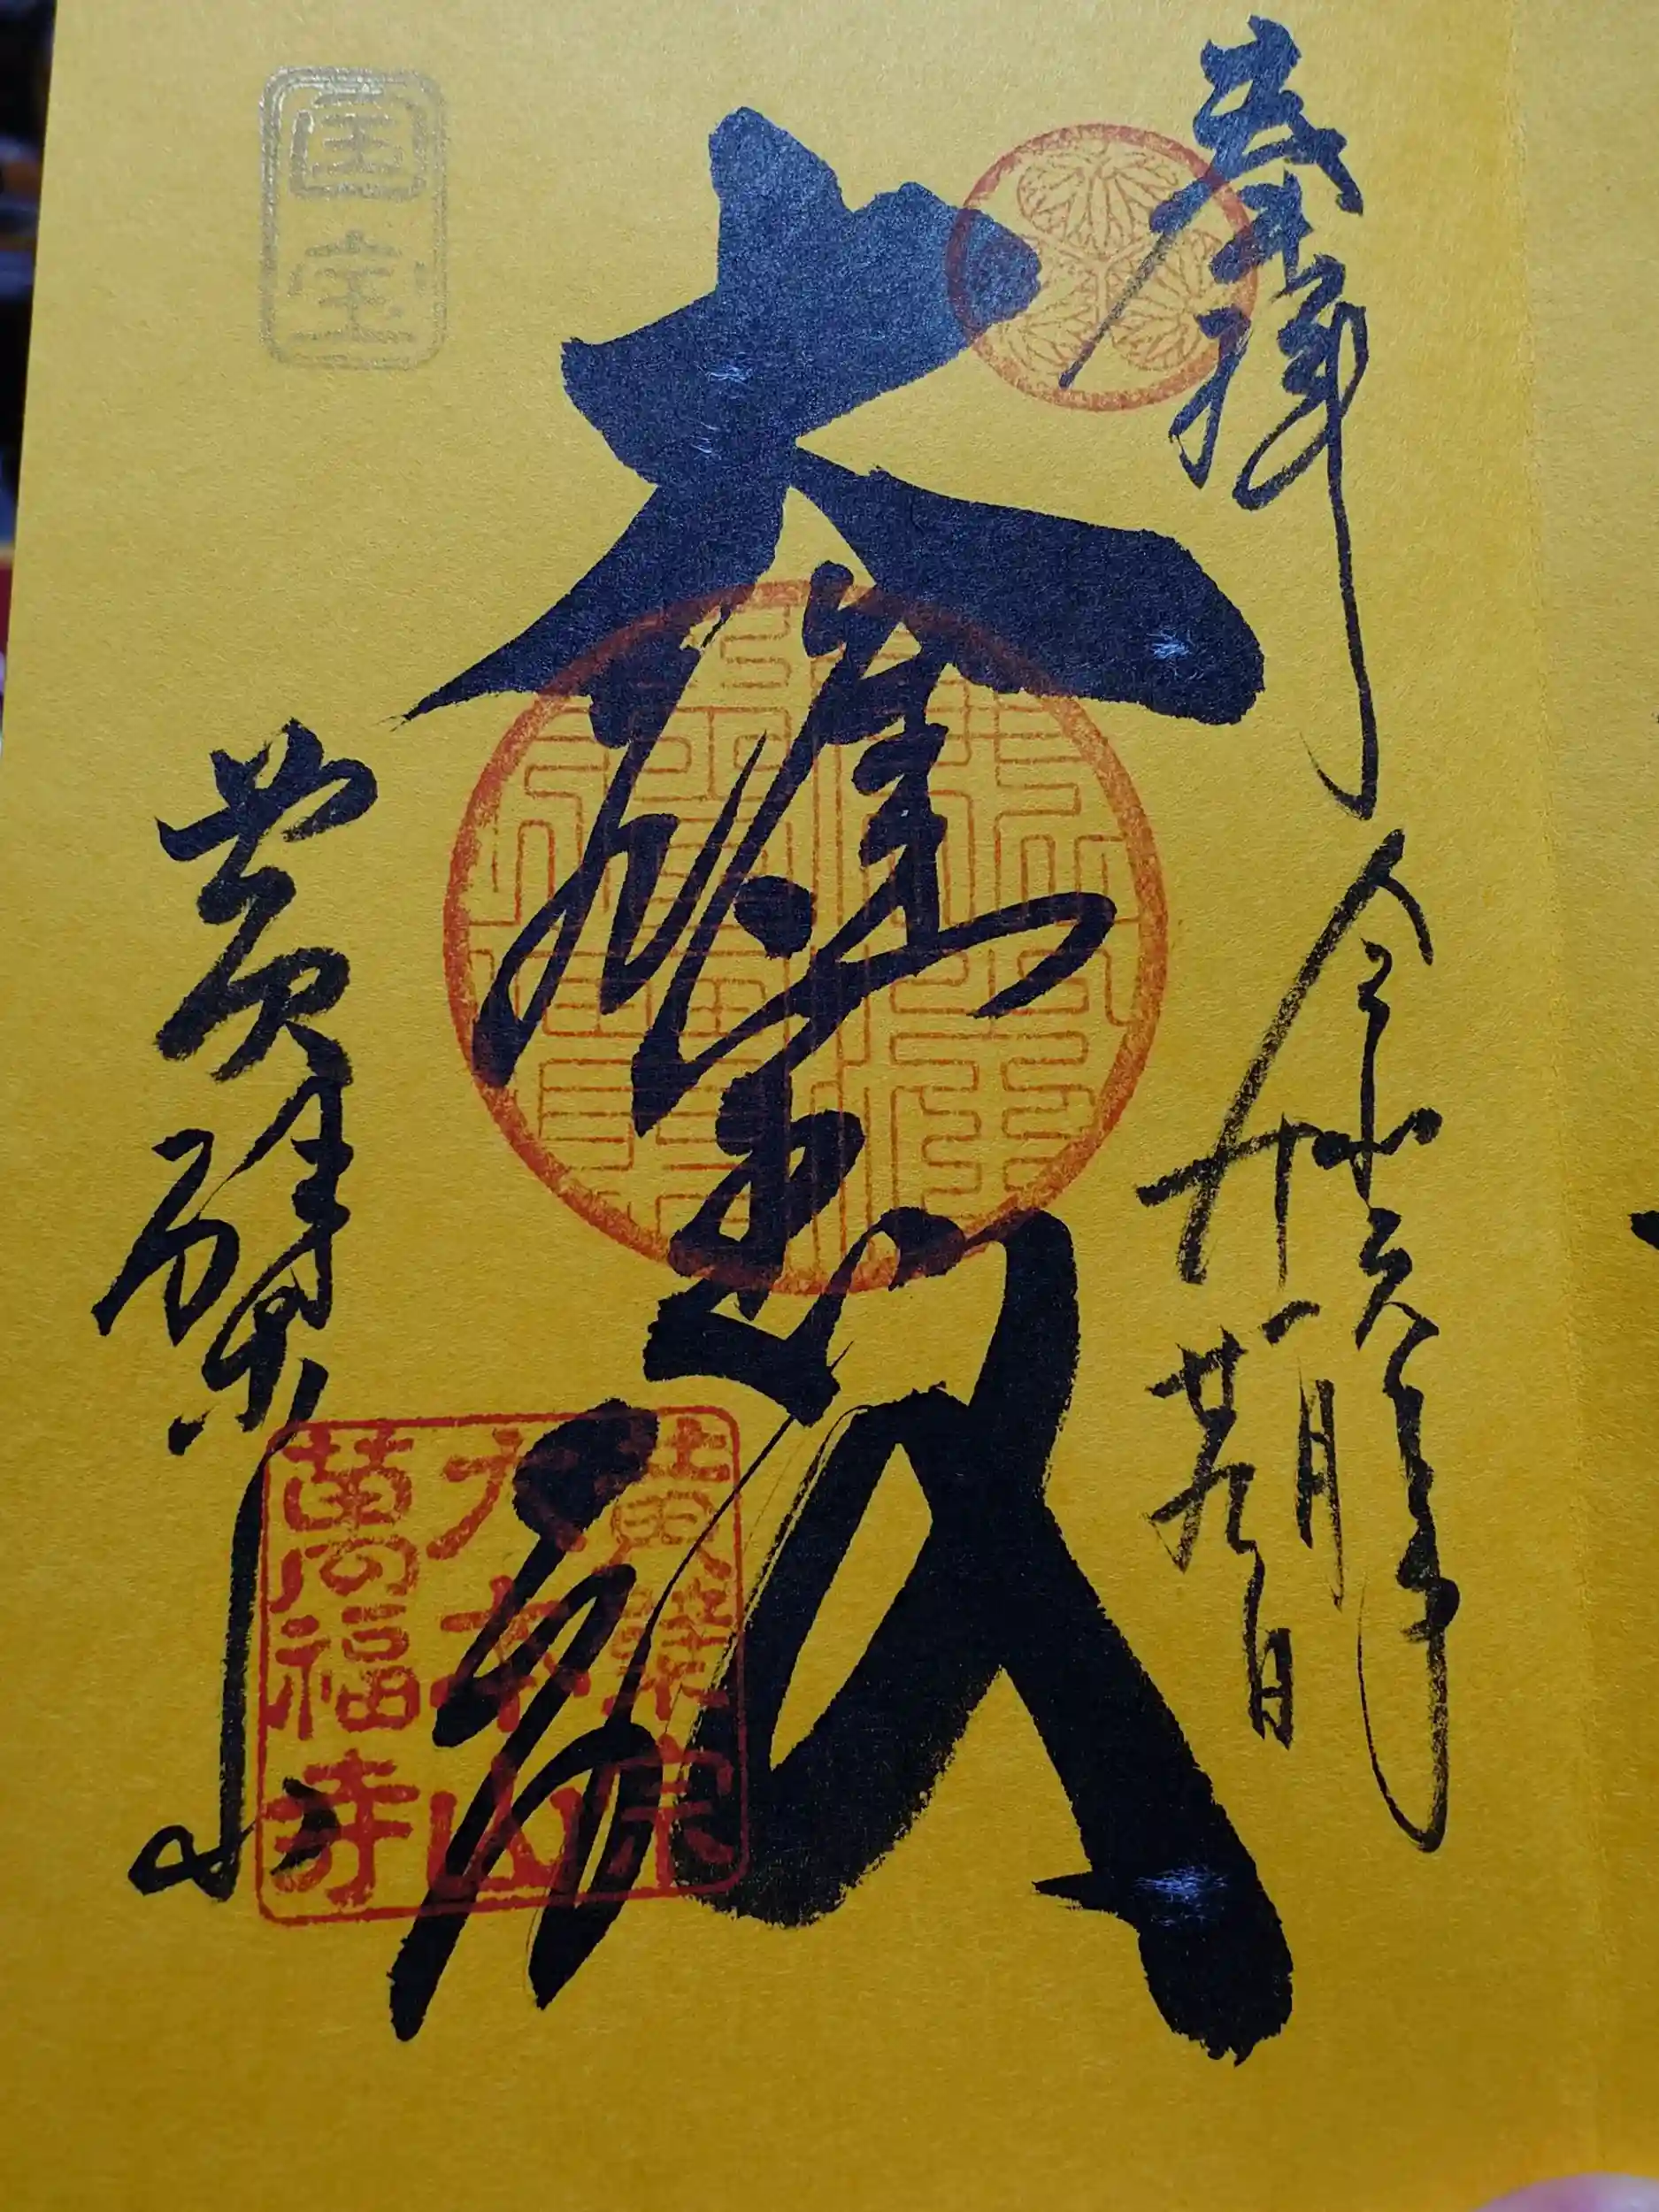 奉拝
令和六年
十一月
廿九日
大雄寳殿
国宝
黄檗山
黄檗宗
大本山
萬福寺